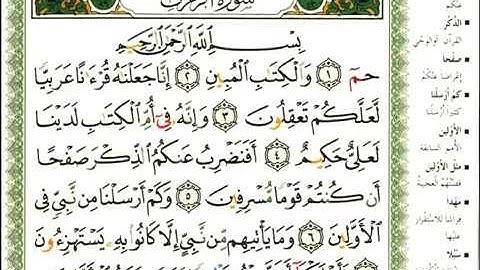 سورة الزخرف
بِسْمِ ٱللَّهِ ٱلرَّحْمَٰنِ ٱلرَّحِيمِ
حمٓ ١ وَٱلْكِتَٰبِ ٱلْمُبِينِ ٢ إِنَّا جَعَلْنَٰهُ قُرْءَٰنًا عَرَبِيًّا
لَّعَلَّكُمْ تَعْقِلُونَ ٣ وَإِنَّهُۥ فِىٓ أُمِّ ٱلْكِتَٰبِ لَدَيْنَا
لَعَلِىٌّ حَكِيمٌ ٤ أَفَنَضْرِبُ عَنكُمُ ٱلذِّكْرَ صَفْحًا
أَن كُنتُمْ قَوْمًا مُّسْرِفِينَ ٥ وَكَمْ أَرْسَلْنَا مِن نَّبِىٍّ فِى
ٱلْأَوَّلِينَ ٦ وَمَا يَأْتِيهِم مِّن نَّبِىٍّ إِلَّا كَانُوا۟ بِهِۦ يَسْتَهْزِءُونَ
عنكم
الذكر
القرآن أو الوحي
صفحا
إعراضا عنكم
كم أرسلنا
كثيرا أرسلنا
الأولين
الأمم السابقة
مثل الأولين
قصتهم العجيبة
مهدا
فراشا للاستقرار
عليها
سبلا